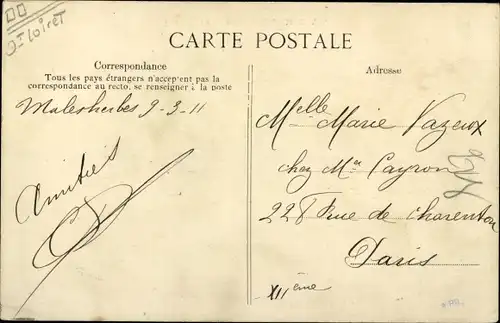 Dt Loiret
CARTE POSTALE
Correspondance
Tous les pays étrangers n'acceptent pas la
correspondance au recto, se renseigner à la poste
Malesherbes 9-3-11
Amitiés
Adresse
Melle Marie Vazeux
chez Mr Cayron
228 Rue de Charenton
Paris
XIIème